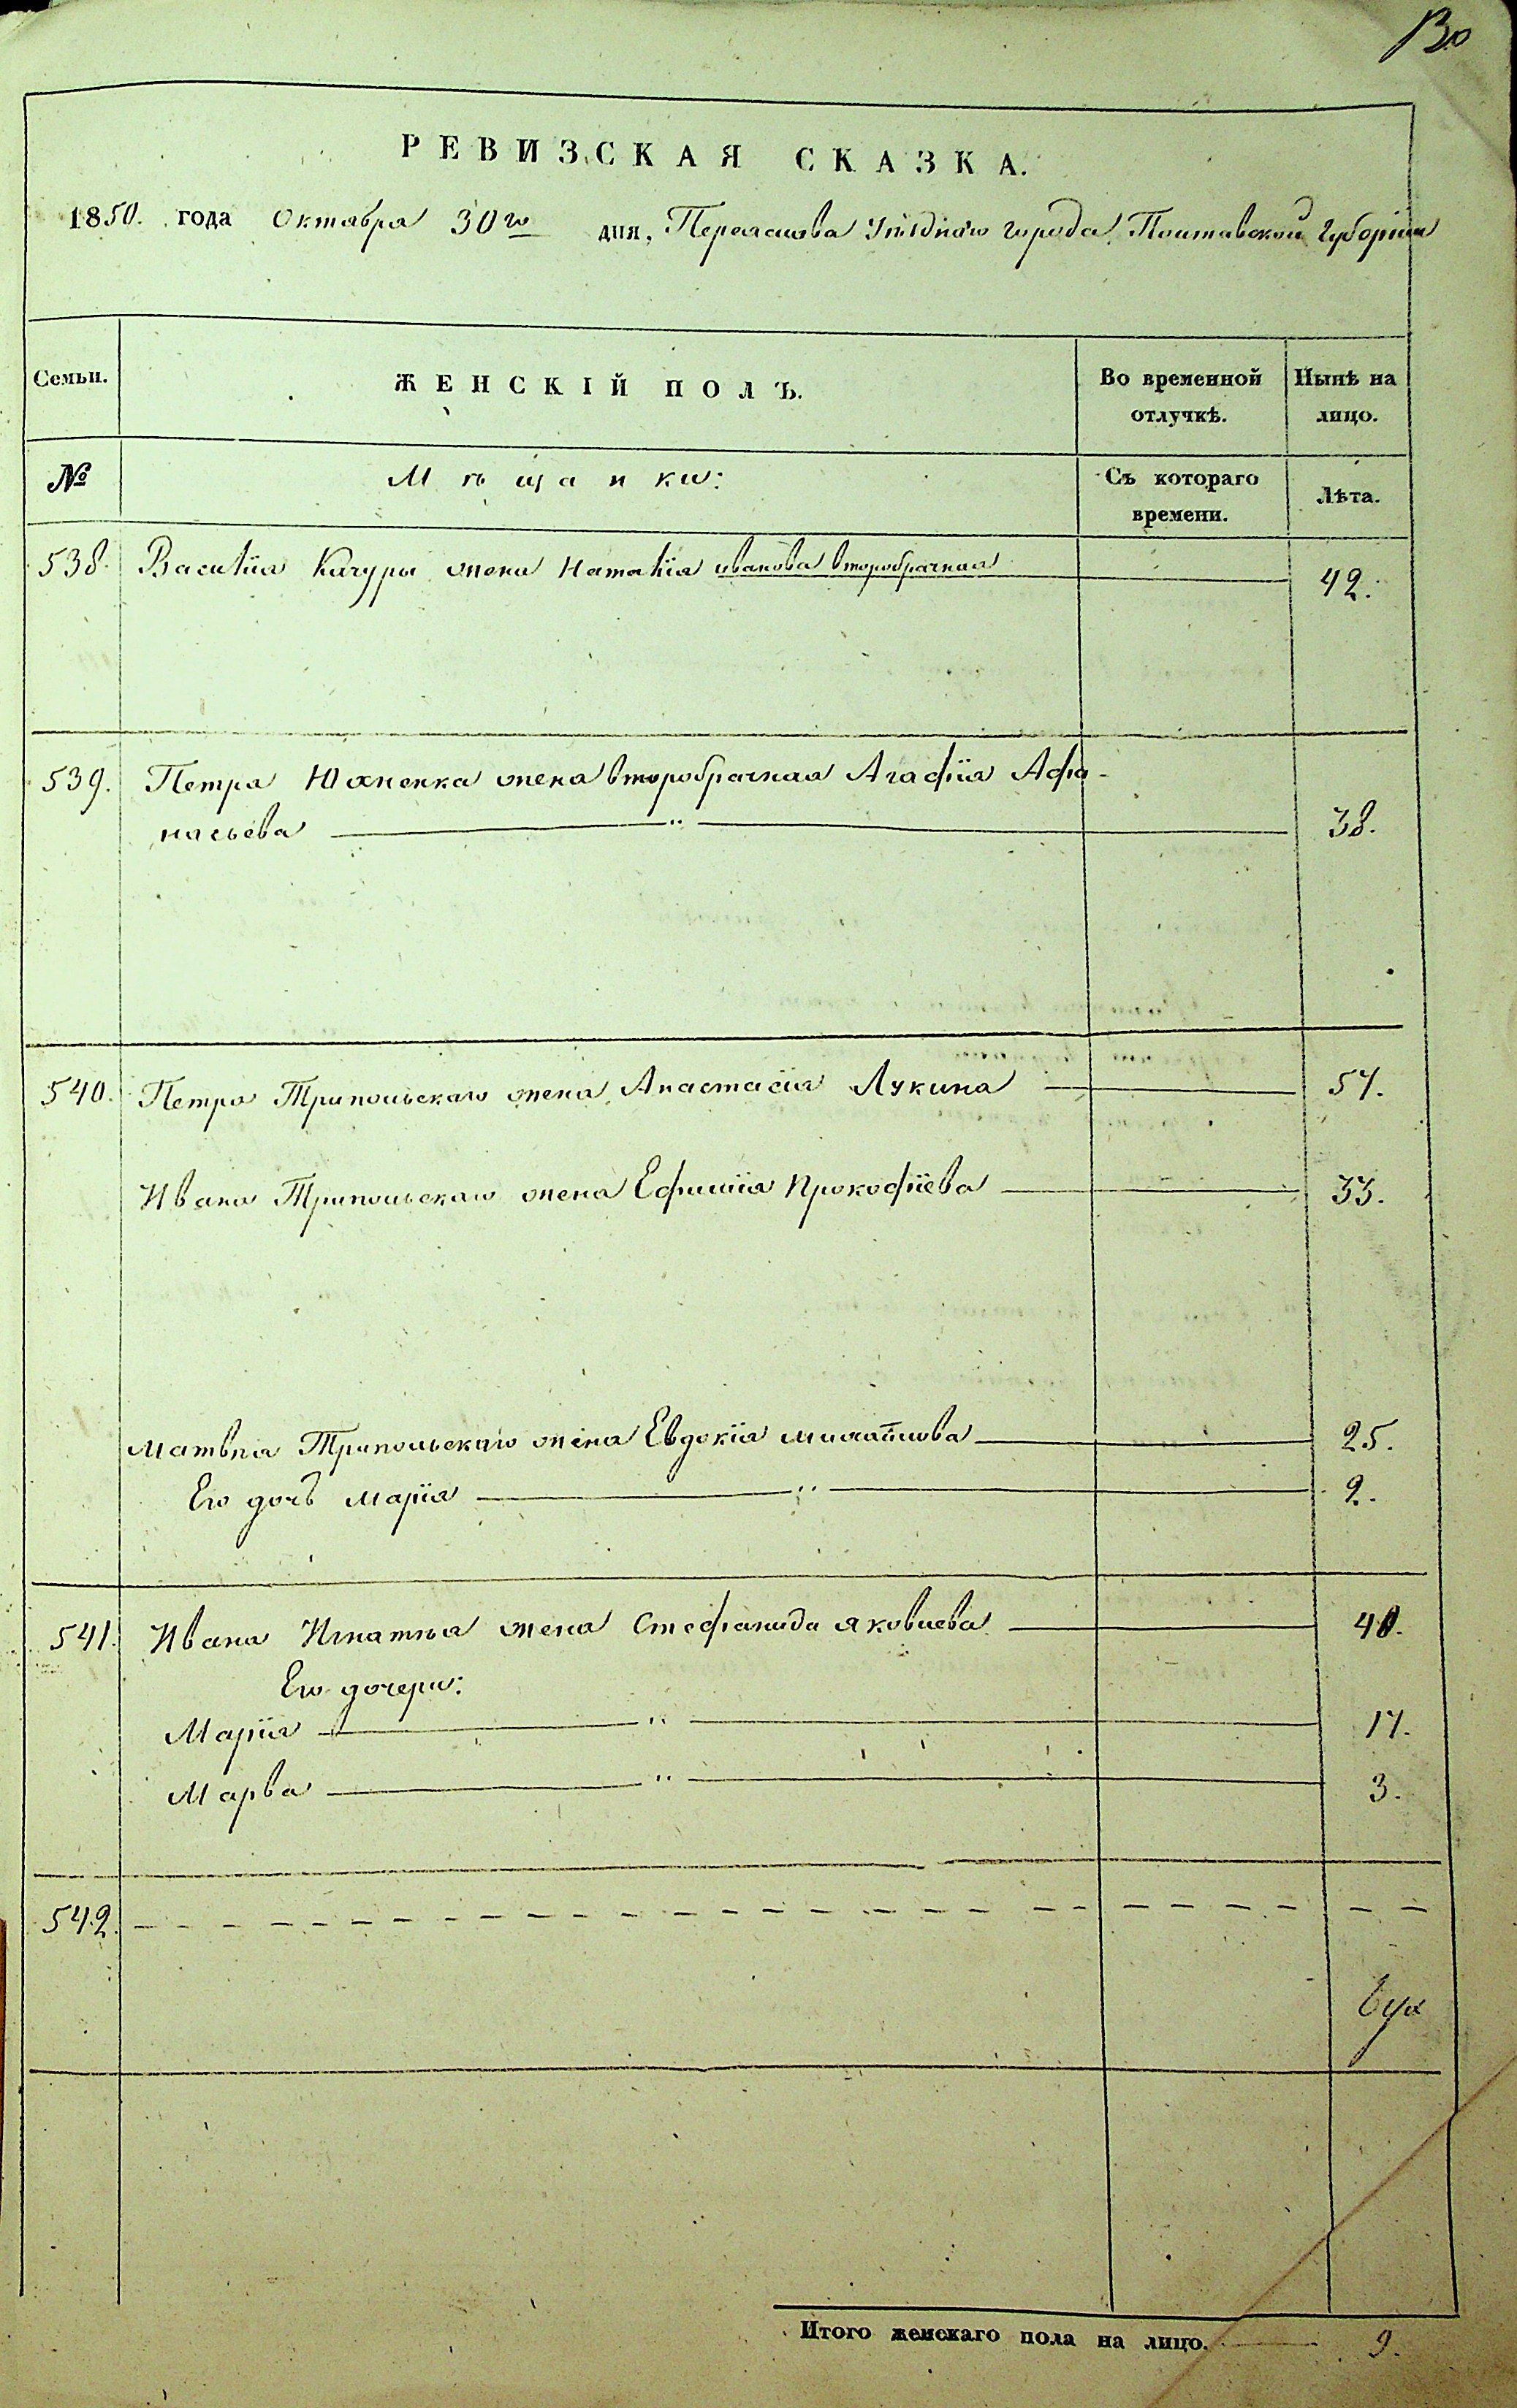 РЕВИЗСКАЯ СКАЗКА.
1850. года Октября 30го дня, Переяслова Уѣзднаго города Полтавской Губерніи
Семьи.
ЖЕНСКІЙ ПОЛЪ.
Во временной отлучкѣ.
Нынѣ на лицо.
№
Мѣщанки:
Съ котораго времени.
Лѣта.
538. Василія Качуры жена Наталія Иванова второбрачная 42.
539. Петра Юхненка жена второбрачная Агафія Афа-
насьева " 38.
540. Петра Трипольскаго жена Анастасія Лукина 57.
Ивана Трипольскаго жена Ефимія Прокофіева 33.
Матвѣя Трипольскаго жена Евдокія Михайлова 25.
Его дочь Марія " 2.
541. Ивана Игнатѣя жена Стефанида Яковлева 40.
Его дочери:
Марія " 17.
Марѳа " 3.
542. – – – – – – – – – –
Итого женскаго пола на лицо. 9.